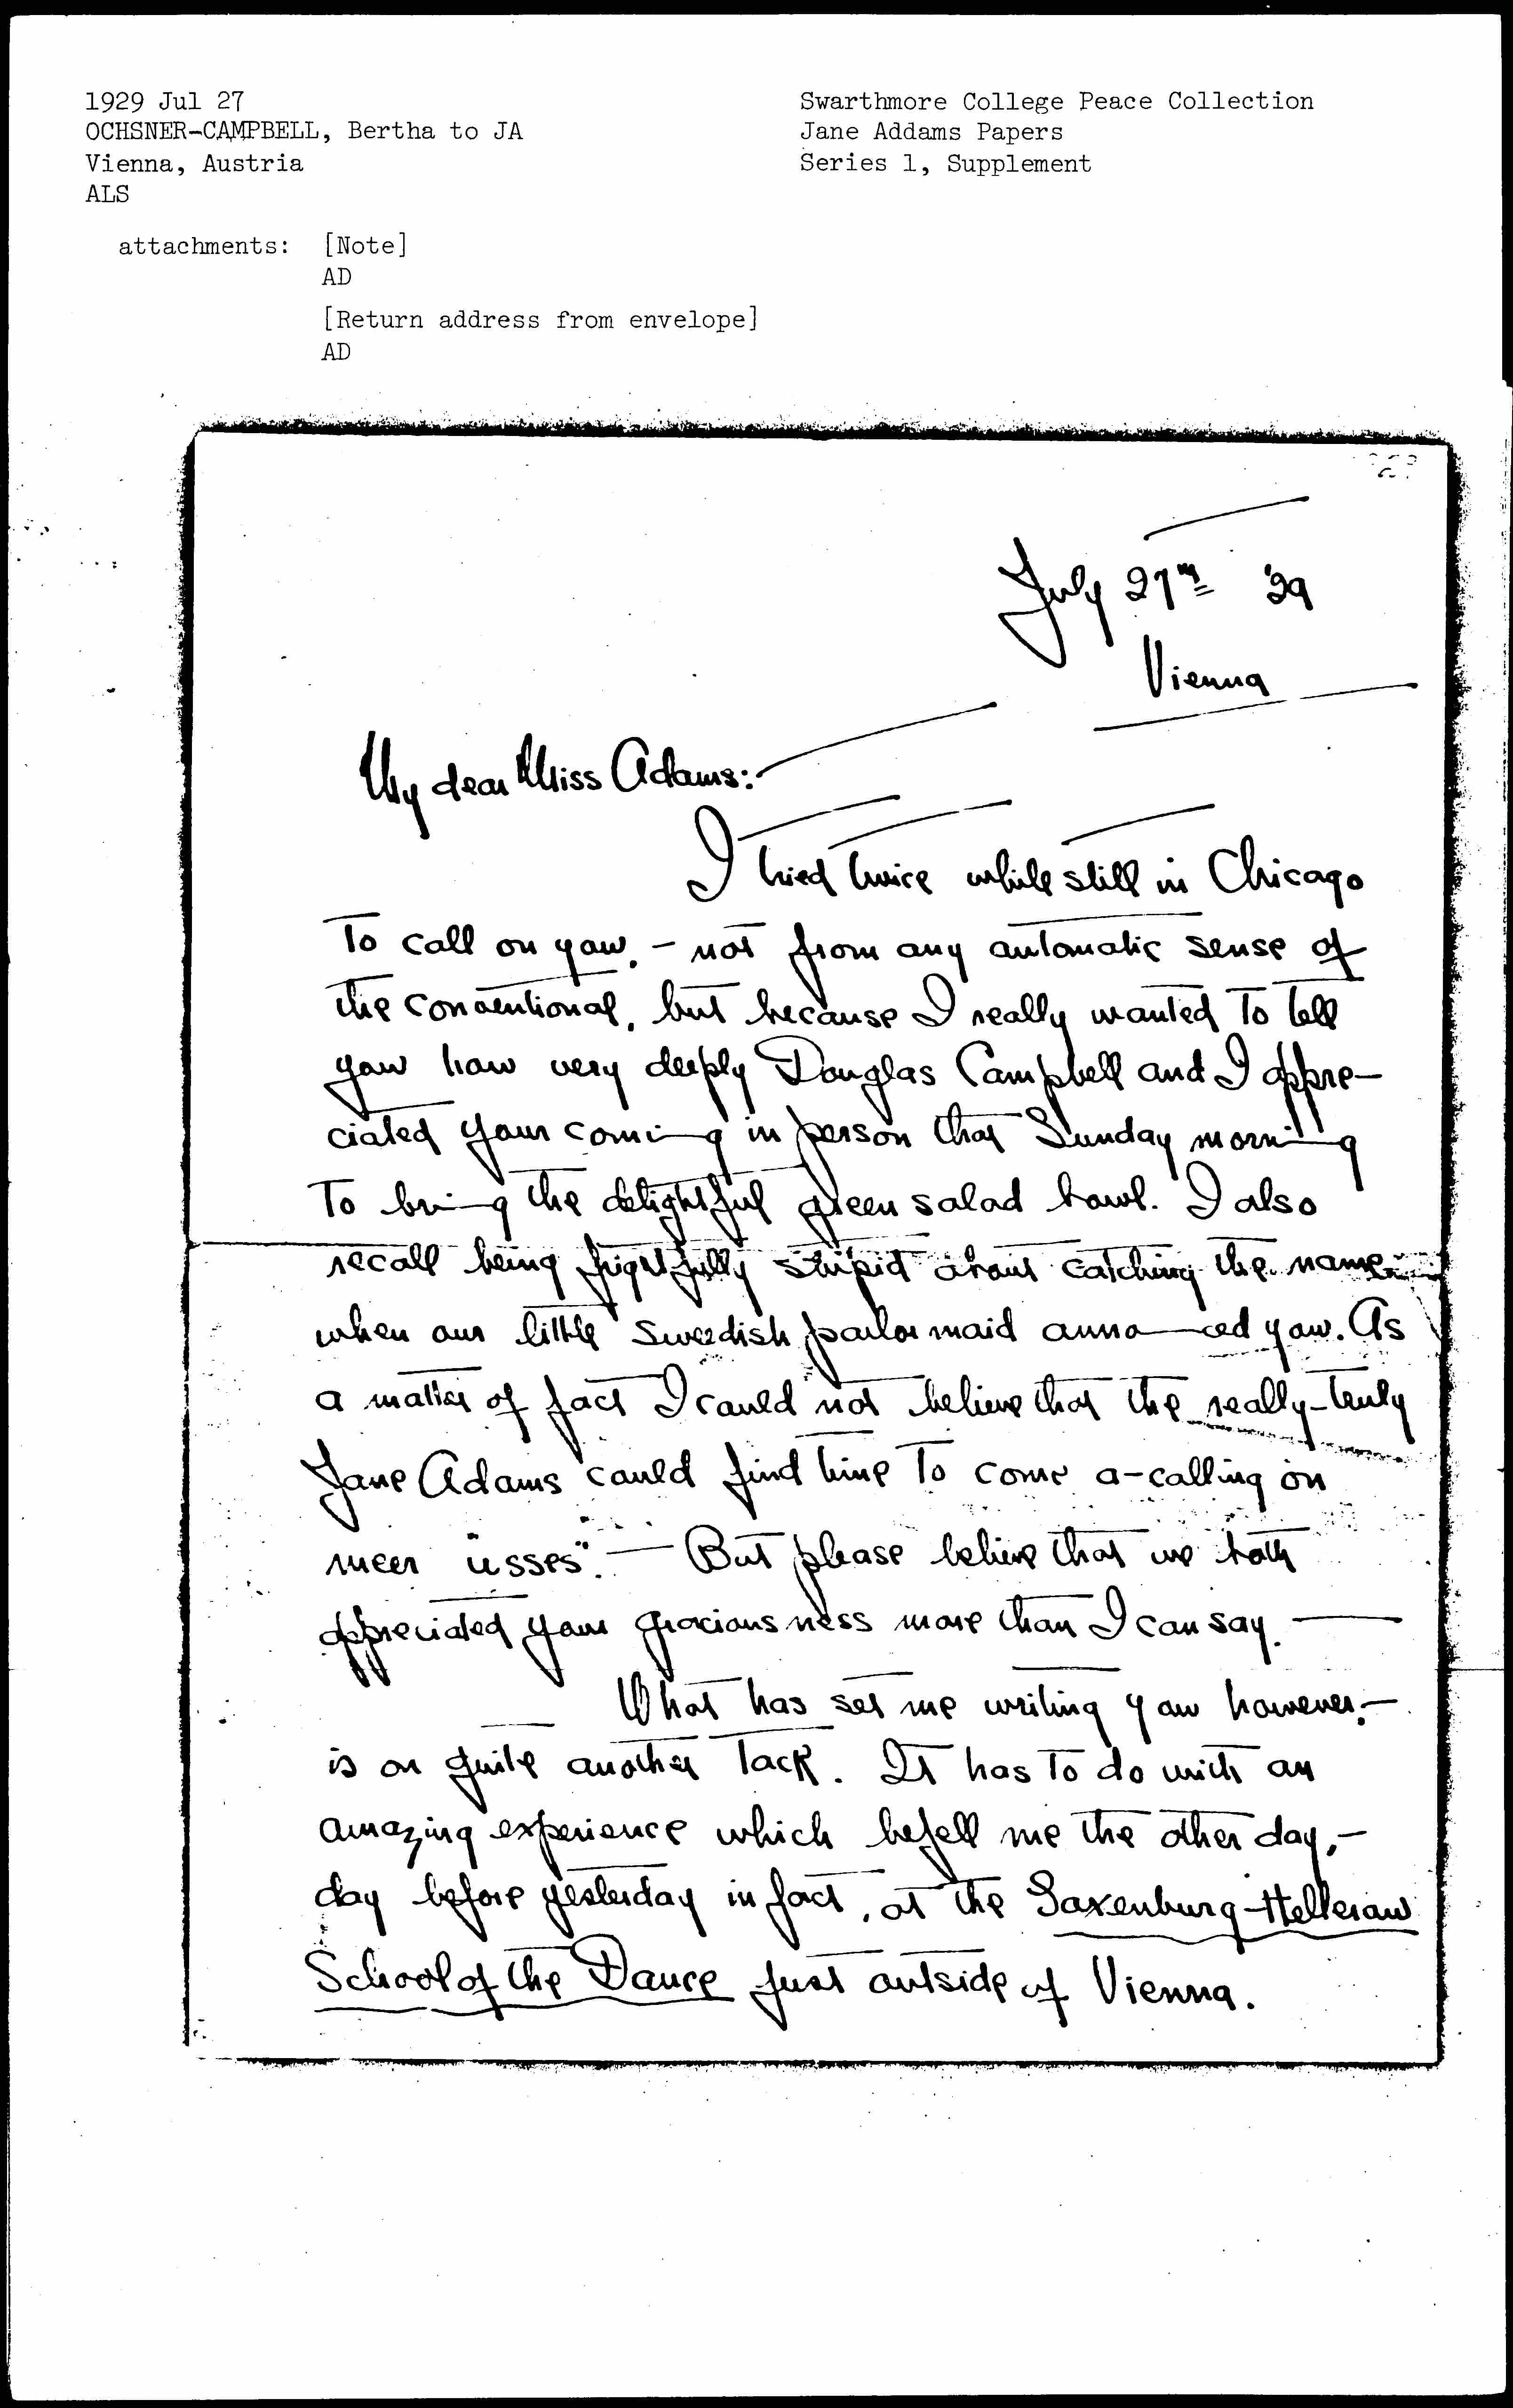 1929 Jul 27
OCHSNER-CAMPBELL, Bertha to JA
Vienna, Austria
ALS
attachments: [Note]
AD
[Return address from envelope]
AD
Swarthmore College Peace Collection
Jane Addams Papers
Series 1, Supplement
July 27th '29
Vienna
My dear Miss Adams:
I tried twice while still in Chicago
to call on you, - not from any automatic sense of
the conventional, but because I really wanted to tell
you how very deeply Douglas Campbell and I appre-
ciated your coming in person that Sunday morning
to bring the delightful green salad bowl. I also
recall being frightfully stupid about catching the name
when our little Swedish parlor maid announced you. As
a matter of fact I could not believe that the really-truly
Jane Adams could find time to come a-calling on
meer "usses". — But please believe that we both
appreciated your graciousness more than I can say. —
What has set me writing you however, -
is on quite another tack. It has to do with an
amazing experience which befell me the other day, -
day before yesterday in fact, at the Laxenburg-Hellerau
School of the Dance just outside of Vienna.